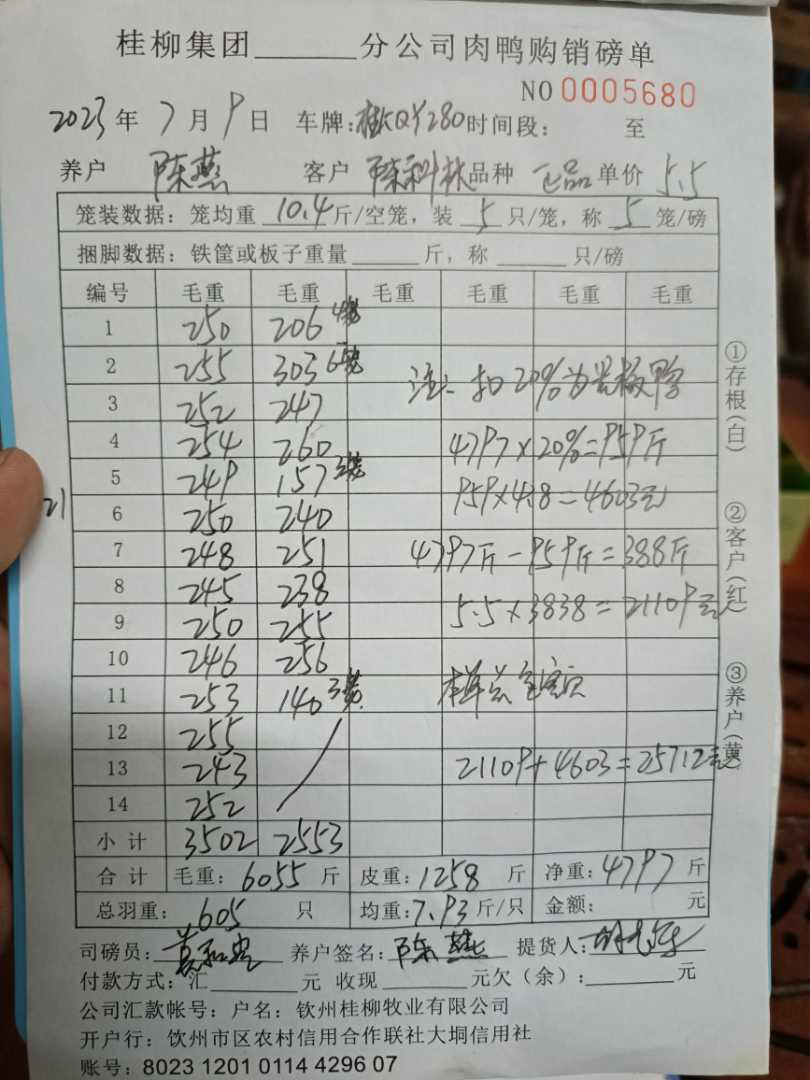 桂柳集团______分公司肉鸭购销磅单
NO 0005680
2023年7月9日 车牌:桂KQY280时间段: 至
养户 陈燕 客户 陈科林 品种 正品 单价 5.5
笼装数据：笼均重 10.4 斤/空笼，装 5 只/笼，称 5 笼/磅
捆脚数据：铁筐或板子重量______斤，称______只/磅
编号 毛重 毛重 毛重 毛重 毛重 毛重
1 250 206 4笼
2 255 303 6笼
3 252 247
注: 扣20%为
4 254 260
4797×20%=959斤
5 249 157 3笼
959×4.8=4603元
21
6 250 240
7 248 251
4797斤-959斤=388斤
8 245 238
5.5×3838=21109元
9 250 255
10 246 256
11 253 140 3笼
本单总金额
12 255
13 243
21109+4603=25712元
14 252
小计 3502 2553
合计 毛重: 6055 斤 皮重: 1258 斤 净重: 4797 斤
总羽重: 605 只 均重: 7.93 斤/只 金额: 元
司磅员: 养户签名: 陈燕 提货人:
付款方式: 汇______元 收现______元欠（余）:______元
公司汇款帐号：户名：钦州桂柳牧业有限公司
开户行：钦州市区农村信用合作联社大垌信用社
账号：8023 1201 0114 4296 07
①存根(白) ②客户(红) ③养户(黄)